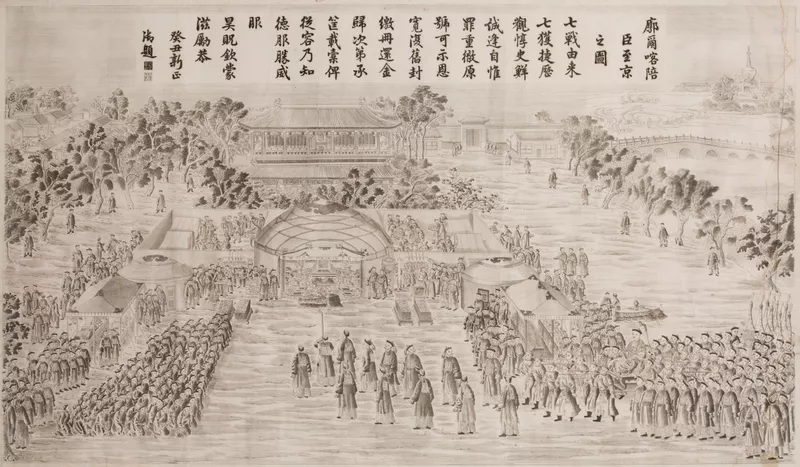 廓爾喀陪
臣至京
之圖
七戰由來
七獲捷歷
觀惇史鮮
誠逢自惟
罪重徹原
號可示恩
寬復舊封
繳冊還金
歸次第承
筐載橐俾
從容乃知
德服勝威
服
昊貺欽蒙
滋勵恭
癸丑新正
御題